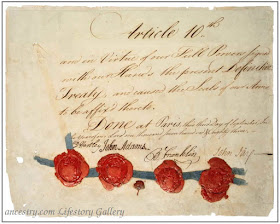 Article 10th.
and in Virtue of our Full Powers, Signed
with our Hands the present Definitive
Treaty, and caused the Seals of our Arms
to be affix'd thereto.
Done at Paris, this third day of September
one thousand seven hundred & eighty three
D Hartley John Adams B Franklin John Jay
ancestry.com Lifestory Gallery